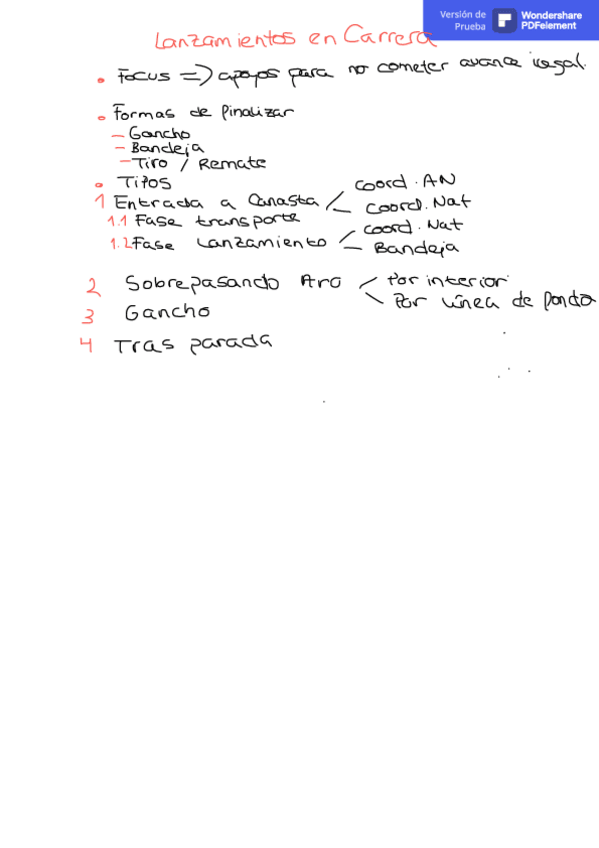 Versión de Prueba Wondershare PDFelement
Lanzamientos en Carrera
• Focus => apoyos para no cometer avance ilegal.
• Formas de finalizar
- Gancho
- Bandeja
- Tiro / Remate
• Tipos
1 Entrada a Canasta < coord. AN
coord. Nat
1.1 Fase transporte
1.2 Fase Lanzamiento < coord. Nat
Bandeja
2 Sobrepasando Aro < Por interior
Por línea de fondo
3 Gancho
4 Tras parada